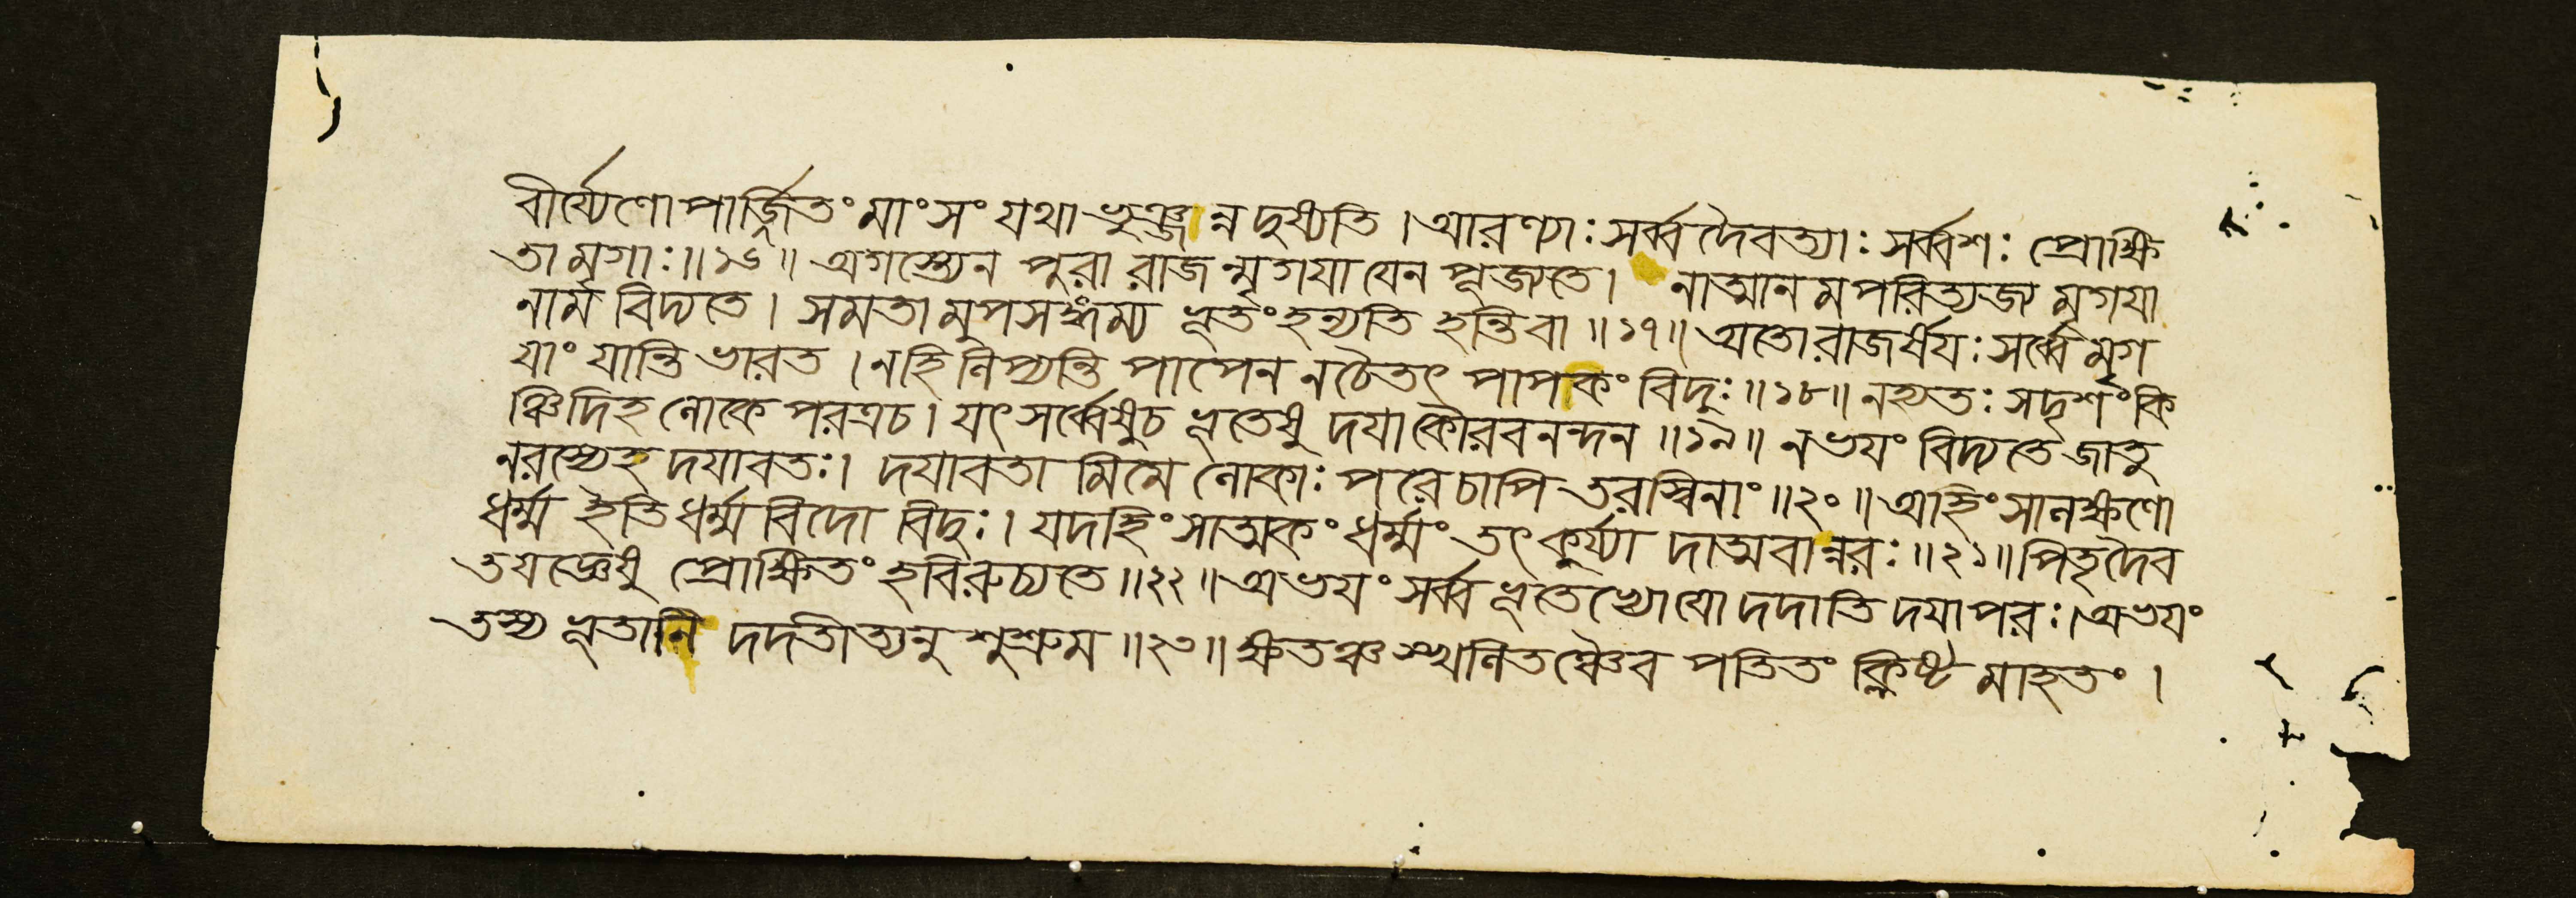 বীর্য্যেণোপার্জ্জিতং মাংসং যথা ভুঞ্জন্নদুষ্যতি । আরণ্যাঃ সর্ব্বদৈবত্যাঃ সর্ব্বশঃ প্রোক্ষি
তা মৃগাঃ ॥ ১৬ ॥ অগস্ত্যেন পুরা রাজন্মৃগযা যেন পূজ্যতে । নাত্মানমপরিত্যজ্য মৃগযা
নাম বিদ্যতে । সমতামুপসঙ্গম্য ভূতং হন্যতি হন্তি বা ॥ ১৭ ॥ অতো রাজর্ষযঃ সর্ব্বে মৃগ
যাং যান্তি ভারত । নহি লিপ্যন্তি পাপেন নচৈতৎ পাপকং বিদুঃ ॥ ১৮ ॥ নহ্যতঃ সদৃশং কি
ঞ্চিদিহ লোকে পরত্রচ । যৎ সর্ব্বেষুচ ভূতেষু দযা কৌরবনন্দন ॥ ১৯ ॥ নভযং বিদ্যতে জাতু
নরস্যেহ দযাবতঃ । দযাবতামিমে লোকাঃ পরে চাপি তরস্বিনাং ॥ ২০ ॥ অহিংসালক্ষণো
ধর্ম্ম ইতি ধর্ম্মবিদো বিদুঃ । যদহিংসাত্মকং ধর্ম্মং তৎ কুর্য্যা দাত্মবান্নরঃ ॥ ২১ ॥ পিতৃদৈব
তযজ্ঞেষু প্রোক্ষিতং হবিরুচ্যতে ॥ ২২ ॥ অভযং সর্ব্বভূতেভ্যো যো দদাতি দযাপরঃ । অভযং
তস্য ভূতানি দদতীত্যনুশুশ্রুম ॥ ২৩ ॥ ক্ষতঞ্চ স্খলিতঞ্চৈব পতিতং ক্লিষ্টমাহতং ।